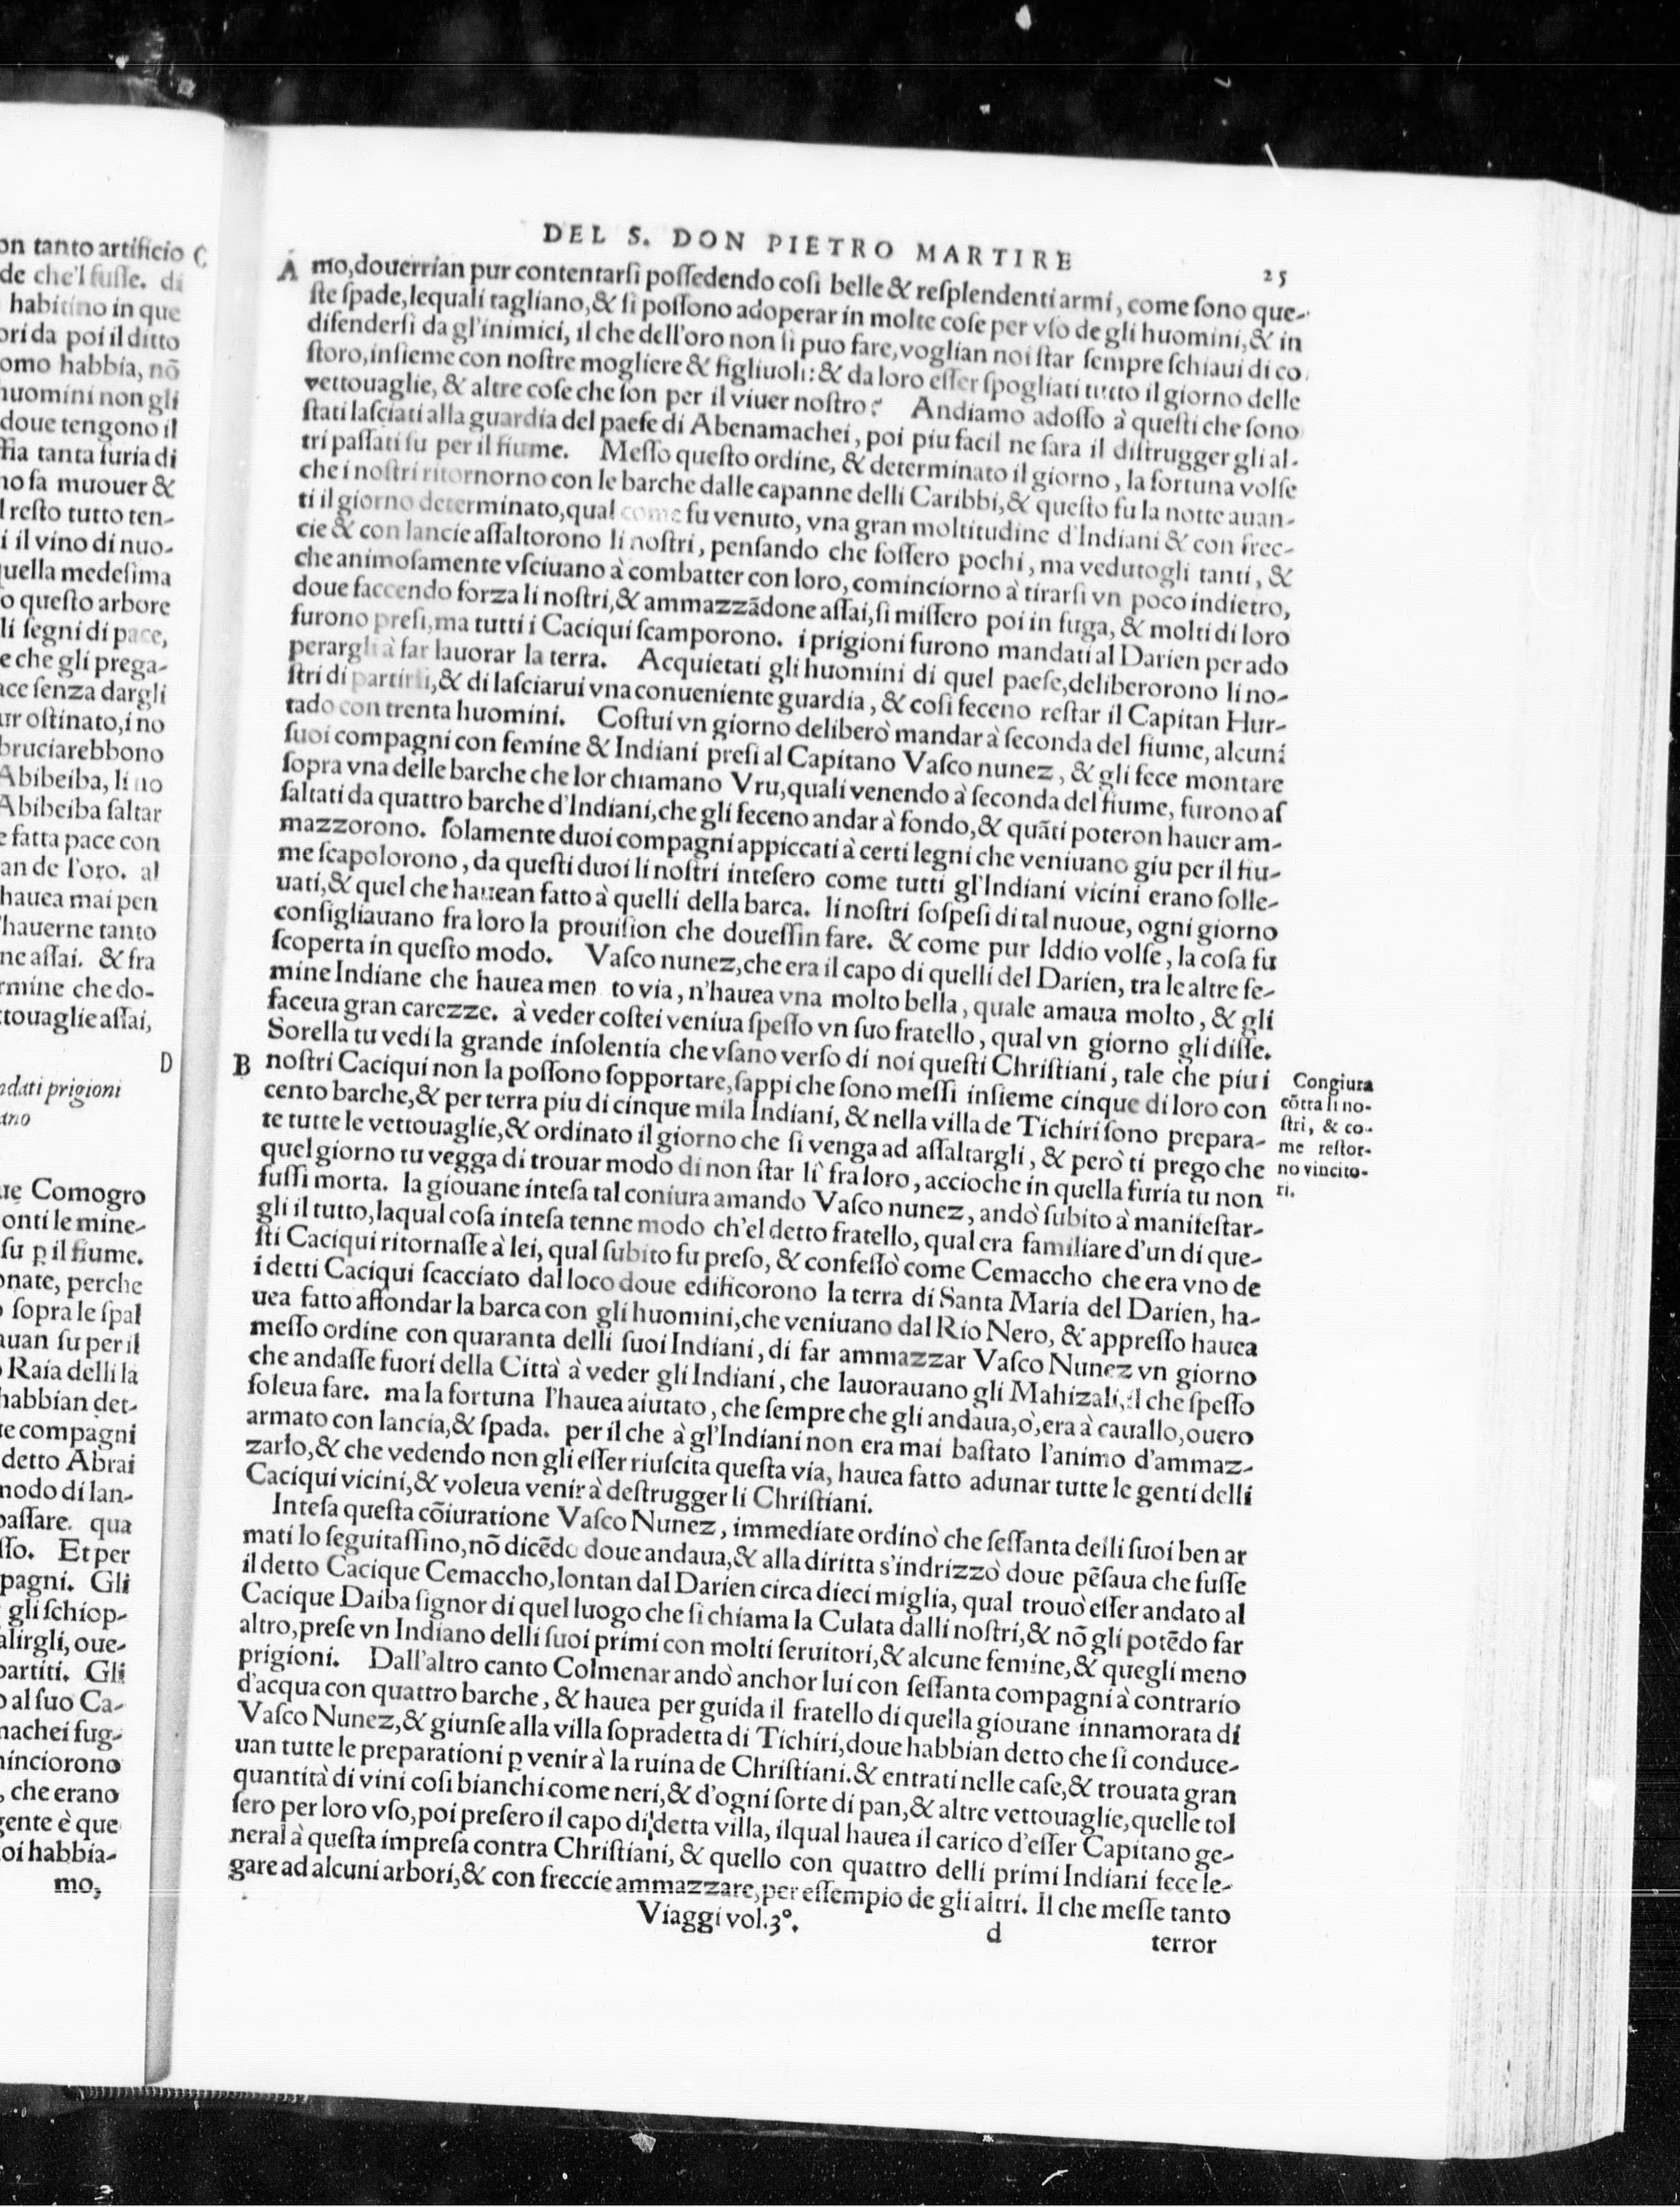 on tanto artificio C
de che'l fusse. di
habitino in que
ori da poi il ditto
omo habbia, nõ
huomini non gli
doue tengono il
ffia tanta furia di
no fa muouer &
l resto tutto ten-
i il vino di nuo-
quella medesima
o questo arbore
li segni di pace,
e che gli prega-
ace senza dargli
ur ostinato, i no
bruciarebbono
Abibeiba, li no
Abibeiba saltar
e fatta pace con
an de l'oro. al
hauea mai pen
hauerne tanto
ne assai. & fra
rmine che do-
ttouaglie assai,
D
ndati prigioni
ano
ue Comogro
onti le mine-
su ꝑ il fiume.
onate, perche
sopra le spal
auan su per il
Raia delli la
habbian det-
te compagni
detto Abrai
modo di lan-
passare. qua
sso. Et per
pagni. Gli
gli schiop-
alirgli, oue-
partiti. Gli
o al suo Ca-
machei fug-
minciorono
, che erano
gente è que
oi habbia-
mo,
DEL S. DON PIETRO MARTIRE
25
A mo, douerrian pur contentarsi possedendo cosi belle & resplendenti armi, come sono que-
ste spade, lequali tagliano, & si possono adoperar in molte cose per vso de gli huomini, & in
difendersi da gl'inimici, il che dell'oro non si puo fare, voglian noi star sempre schiaui di co
storo, insieme con nostre mogliere & figliuoli: & da loro esser spogliati tutto il giorno delle
vettouaglie, & altre cose che son per il viuer nostro? Andiamo adosso à questi che sono
stati lasciati alla guardia del paese di Abenamachei, poi piu facil ne sara il distrugger gli al-
tri passati su per il fiume. Messo questo ordine, & determinato il giorno, la fortuna volse
che i nostri ritornorno con le barche dalle capanne delli Caribbi, & questo fu la notte auan-
ti il giorno determinato, qual come fu venuto, vna gran moltitudine d'Indiani & con frec-
cie & con lancie assaltorono li nostri, pensando che fossero pochi, ma vedutogli tanti, &
che animosamente vsciuano à combatter con loro, cominciorno à tirarsi vn poco indietro,
doue faccendo forza li nostri, & ammazzãdone assai, si missero poi in fuga, & molti di loro
furono presi, ma tutti i Caciqui scamporono. i prigioni furono mandati al Darien per ado
perargli à far lauorar la terra. Acquietati gli huomini di quel paese, deliberorono li no-
stri di partirsi, & di lasciarui vna conueniente guardia, & cosi feceno restar il Capitan Hur-
tado con trenta huomini. Costui vn giorno deliberò mandar à seconda del fiume, alcuni
suoi compagni con femine & Indiani presi al Capitano Vasco nunez, & gli fece montare
sopra vna delle barche che lor chiamano Vru, quali venendo à seconda del fiume, furono as
saltati da quattro barche d'Indiani, che gli feceno andar à fondo, & quãti poteron hauer am-
mazzorono. solamente duoi compagni appiccati à certi legni che veniuano giu per il fiu-
me scapolorono, da questi duoi li nostri intesero come tutti gl'Indiani vicini erano solle-
uati, & quel che hauean fatto à quelli della barca. li nostri sospesi di tal nuoue, ogni giorno
consigliauano fra loro la prouision che douessin fare. & come pur Iddio volse, la cosa fu
scoperta in questo modo. Vasco nunez, che era il capo di quelli del Darien, tra le altre fe-
mine Indiane che hauea men to via, n'hauea vna molto bella, quale amaua molto, & gli
faceua gran carezze. à veder costei veniua spesso vn suo fratello, qual vn giorno gli disse.
Sorella tu vedi la grande insolentia che vsano verso di noi questi Christiani, tale che piu i
B nostri Caciqui non la possono sopportare, sappi che sono messi insieme cinque di loro con
cento barche, & per terra piu di cinque mila Indiani, & nella villa de Tichiri sono prepara-
te tutte le vettouaglie, & ordinato il giorno che si venga ad assaltargli, & però ti prego che
quel giorno tu vegga di trouar modo di non star lì fra loro, accioche in quella furia tu non
fussi morta. la giouane intesa tal coniura amando Vasco nunez, andò subito à manifestar-
gli il tutto, laqual cosa intesa tenne modo ch'el detto fratello, qual era familiare d'un di que-
sti Caciqui ritornasse à lei, qual subito fu preso, & confessò come Cemaccho che era vno de
i detti Caciqui scacciato dal loco doue edificorono la terra di Santa Maria del Darien, ha-
uea fatto affondar la barca con gli huomini, che veniuano dal Rio Nero, & appresso hauea
messo ordine con quaranta delli suoi Indiani, di far ammazzar Vasco Nunez vn giorno
che andasse fuori della Città à veder gli Indiani, che lauorauano gli Mahizali, il che spesso
soleua fare. ma la fortuna l'hauea aiutato, che sempre che gli andaua, ò, era à cauallo, ouero
armato con lancia, & spada. per il che à gl'Indiani non era mai bastato l'animo d'ammaz-
zarlo, & che vedendo non gli esser riuscita questa via, hauea fatto adunar tutte le genti delli
Caciqui vicini, & voleua venir à destrugger li Christiani.
Intesa questa cõiuratione Vasco Nunez, immediate ordinò che sessanta delli suoi ben ar
mati lo seguitassino, nõ dicẽdo doue andaua, & alla diritta s'indrizzò doue pẽsaua che fusse
il detto Cacique Cemaccho, lontan dal Darien circa dieci miglia, qual trouò esser andato al
Cacique Daiba signor di quel luogo che si chiama la Culata dalli nostri, & nõ gli potẽdo far
altro, prese vn Indiano delli suoi primi con molti seruitori, & alcune femine, & quegli meno
prigioni. Dall'altro canto Colmenar andò anchor lui con sessanta compagni à contrario
d'acqua con quattro barche, & hauea per guida il fratello di quella giouane innamorata di
Vasco Nunez, & giunse alla villa sopradetta di Tichiri, doue habbian detto che si conduce-
uan tutte le preparationi ꝑ venir à la ruina de Christiani. & entrati nelle case, & trouata gran
quantità di vini cosi bianchi come neri, & d'ogni sorte di pan, & altre vettouaglie, quelle tol
sero per loro vso, poi presero il capo di detta villa, ilqual hauea il carico d'esser Capitano ge-
neral à questa impresa contra Christiani, & quello con quattro delli primi Indiani fece le-
gare ad alcuni arbori, & con freccie ammazzare, per essempio de gli altri. Il che messe tanto
Viaggi vol. 3°. d terror
Congiura
cõtra li no-
stri, & co-
me restor-
no vincito-
ri.